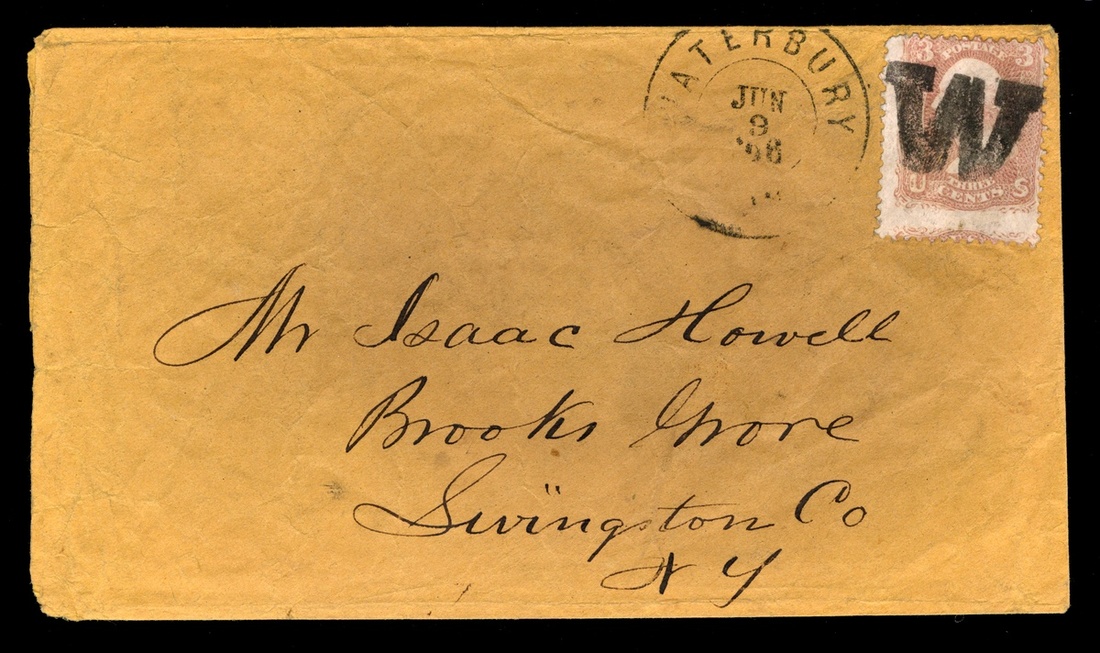 WATERBURY
JUN
3
'66
3 POSTAGE 3
W
U THREE S
CENTS
Mr Isaac Howell
Brooks Grove
Livingston Co
N Y